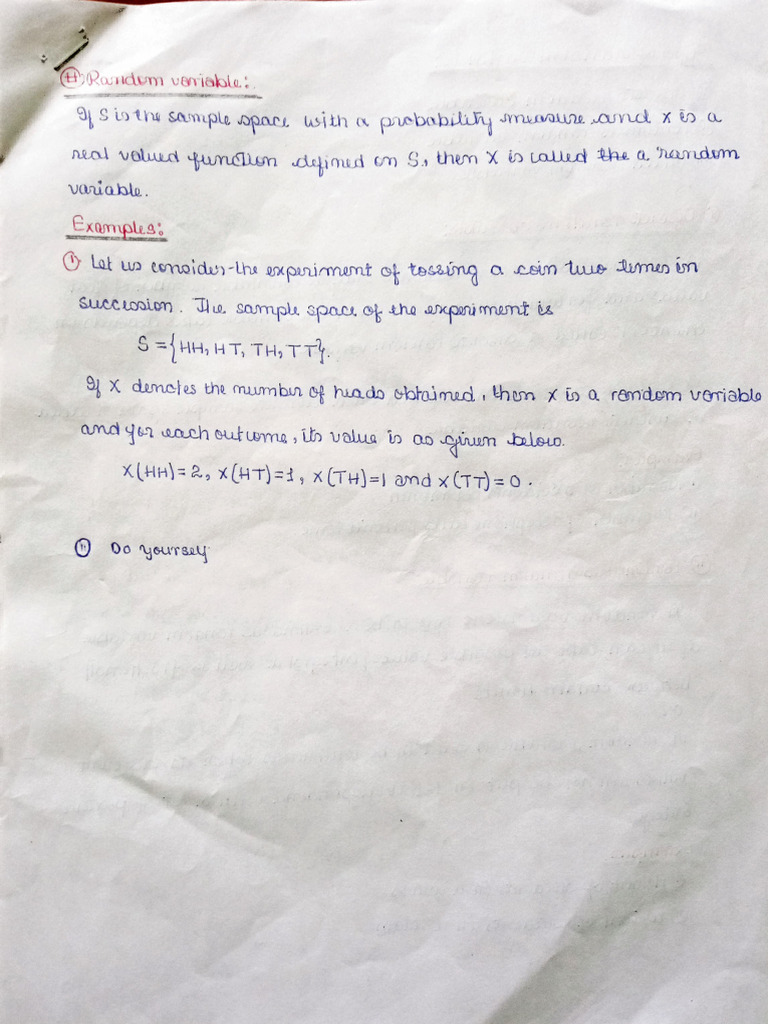 (H) Random variable:
If S is the sample space with a probability measure and X is a
real valued function defined on S, then X is called the a random
variable.
Examples:
(i) Let us consider the experiment of tossing a coin two times in
succession. The sample space of the experiment is
S = {HH, HT, TH, TT}.
If X denotes the number of heads obtained, then X is a random variable
and for each outcome, its value is as given below.
X(HH)=2, X(HT)=1, X(TH)=1 and X(TT)=0.
(ii) Do yourself